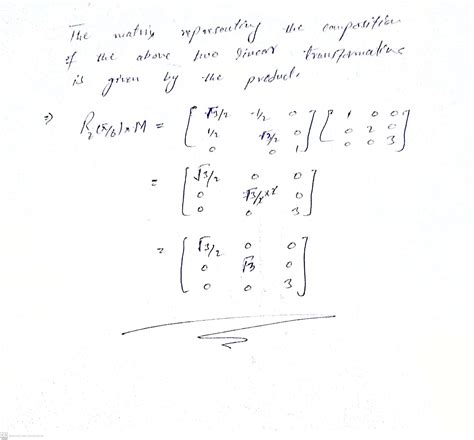 The matrix representing the composition
of the above two linear transformations
is given by the product.
⇒ R_z(π/6) × M = [ √3/2 -1/2 0 ; 1/2 √3/2 0 ; 0 0 1 ] [ 1 0 0 ; 0 2 0 ; 0 0 3 ]
= [ √3/2 0 0 ; 0 √3/2×2 0 ; 0 0 3 ]
= [ √3/2 0 0 ; 0 √3 0 ; 0 0 3 ]